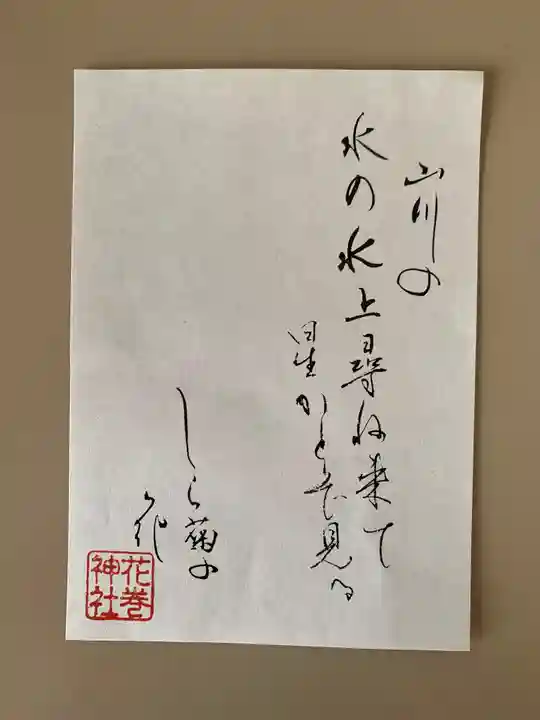 山川の
水の水上尋ね来て
星かとぞ見る
しら菊の
花
花巻
神社